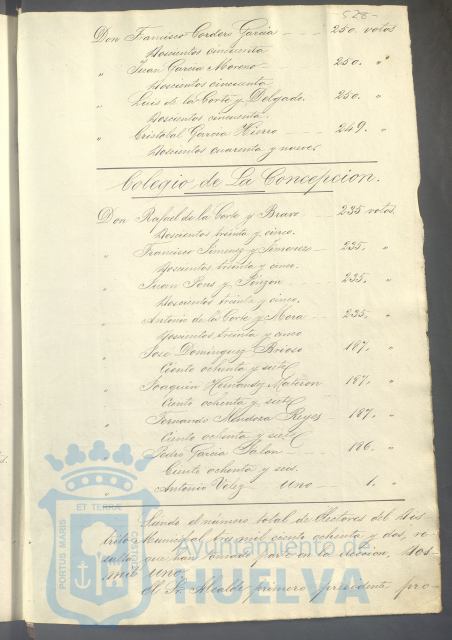 528-
Don Francisco Cordero Garcia - - - 250. votos
Doscientos cincuenta
" Juan Garcia Moreno - 250. "
Doscientos cincuenta
" Luis de la Corte y Delgado. 250. "
Doscientos cincuenta.
" Cristobal Garcia Hierro - - - 249. "
Doscientos cuarenta y nueve.
Colegio de La Concepcion.
Don Rafael de la Corte y Bravo - - 235 votos.
Doscientos treinta y cinco.
" Francisco Jimenez y Jimenez - 235. "
Doscientos treinta y cinco.
" Juan Pons y Pinzon - - - 235. "
Doscientos treinta y cinco.
" Antonio de la Corte y Mora - - 235. "
Doscientos treinta y cinco
" Jose Dominguez Brioso - 187. "
Ciento ochenta y siete
" Joaquin Hernandez - 187. "
Ciento ochenta y siete
" Fernando Mendoza Reyes - 187. "
Ciento ochenta y siete
" Pedro Garcia - - 186. "
Ciento ochenta y seis.
" Antonio Velez - uno - - 1. "
Siendo el número total de Electores del Dis-
trito Municipal tres mil ciento ochenta y dos, re-
sulta que han tomado parte en la eleccion, dos-
mil uno.
El Sr. Alcalde primero presidente pro-
ET TERRA
PORTUS MARIS
CUSTODIA
Ayuntamiento de
HUELVA